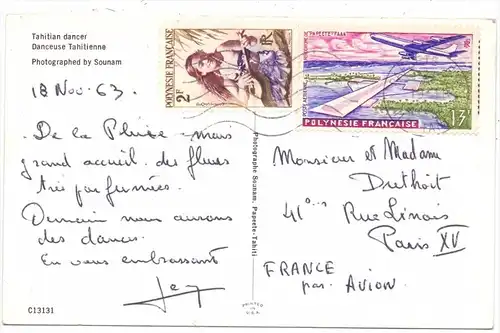 Tahitian dancer
Danceuse Tahitienne
Photographed by Sounam
18 Nov. 63.
De la Pluie mais
grand accueil des fleurs
très parfumées.
Demain nous aurons
des danses.
En vous embrassant
C13131
Photographe Sounam, Papeete-Tahiti
PRINTED IN U.S.A.
POLYNÉSIE FRANÇAISE
2F
RF
POSTE AÉRIENNE
POLYNESIE FRANÇAISE
13F
Monsieur et Madame
Duthoit
41 Rue Linois
Paris XV
FRANCE
par Avion